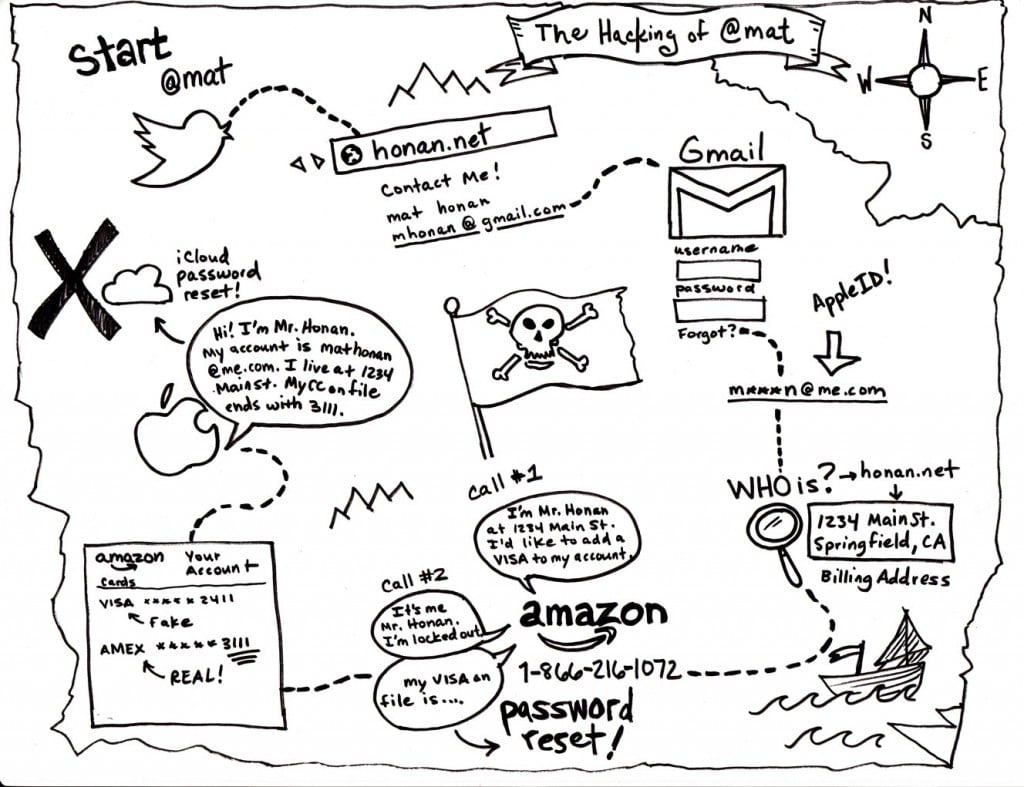 The Hacking of @mat
N
W
E
S
Start
@mat
honan.net
Contact Me!
mat honan
mhonan@gmail.com
Gmail
username
password
Forgot?
AppleID!
m****n@me.com
WHOis? → honan.net
1234 Main St.
Springfield, CA
Billing Address
call #1
I'm Mr. Honan
at 1234 Main St.
I'd like to add a
VISA to my account.
amazon
1-866-216-1072
call #2
It's me
Mr. Honan.
I'm locked out
my VISA on
file is....
password
reset!
amazon Your
Account
Cards
VISA ***** 2411
Fake
AMEX ***** 3111
REAL!
Hi! I'm Mr. Honan.
My account is mathonan
@me.com. I live at 1234
Main St. My CC on file
ends with 3111.
iCloud
password
reset!
X